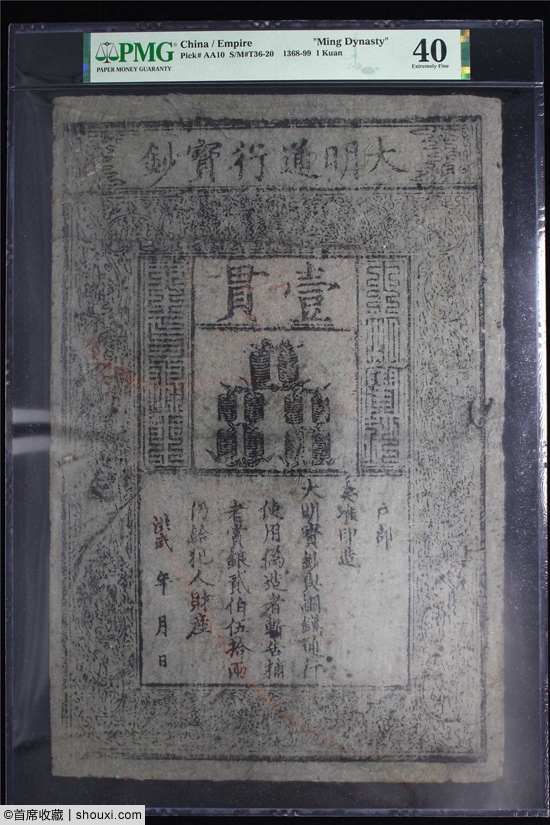 PMG
PAPER MONEY GUARANTY
China / Empire "Ming Dynasty"
Pick# AA10 S/M#T36-20 1368-99 1 Kuan
40
Extremely Fine
大明通行寶鈔
壹貫
戶部
奏准印造
大明寶鈔與銅錢通行
使用偽造者斬告捕
者賞銀貳伯伍拾兩
仍給犯人財產
洪武 年 月 日
©首席收藏 | shouxi.com